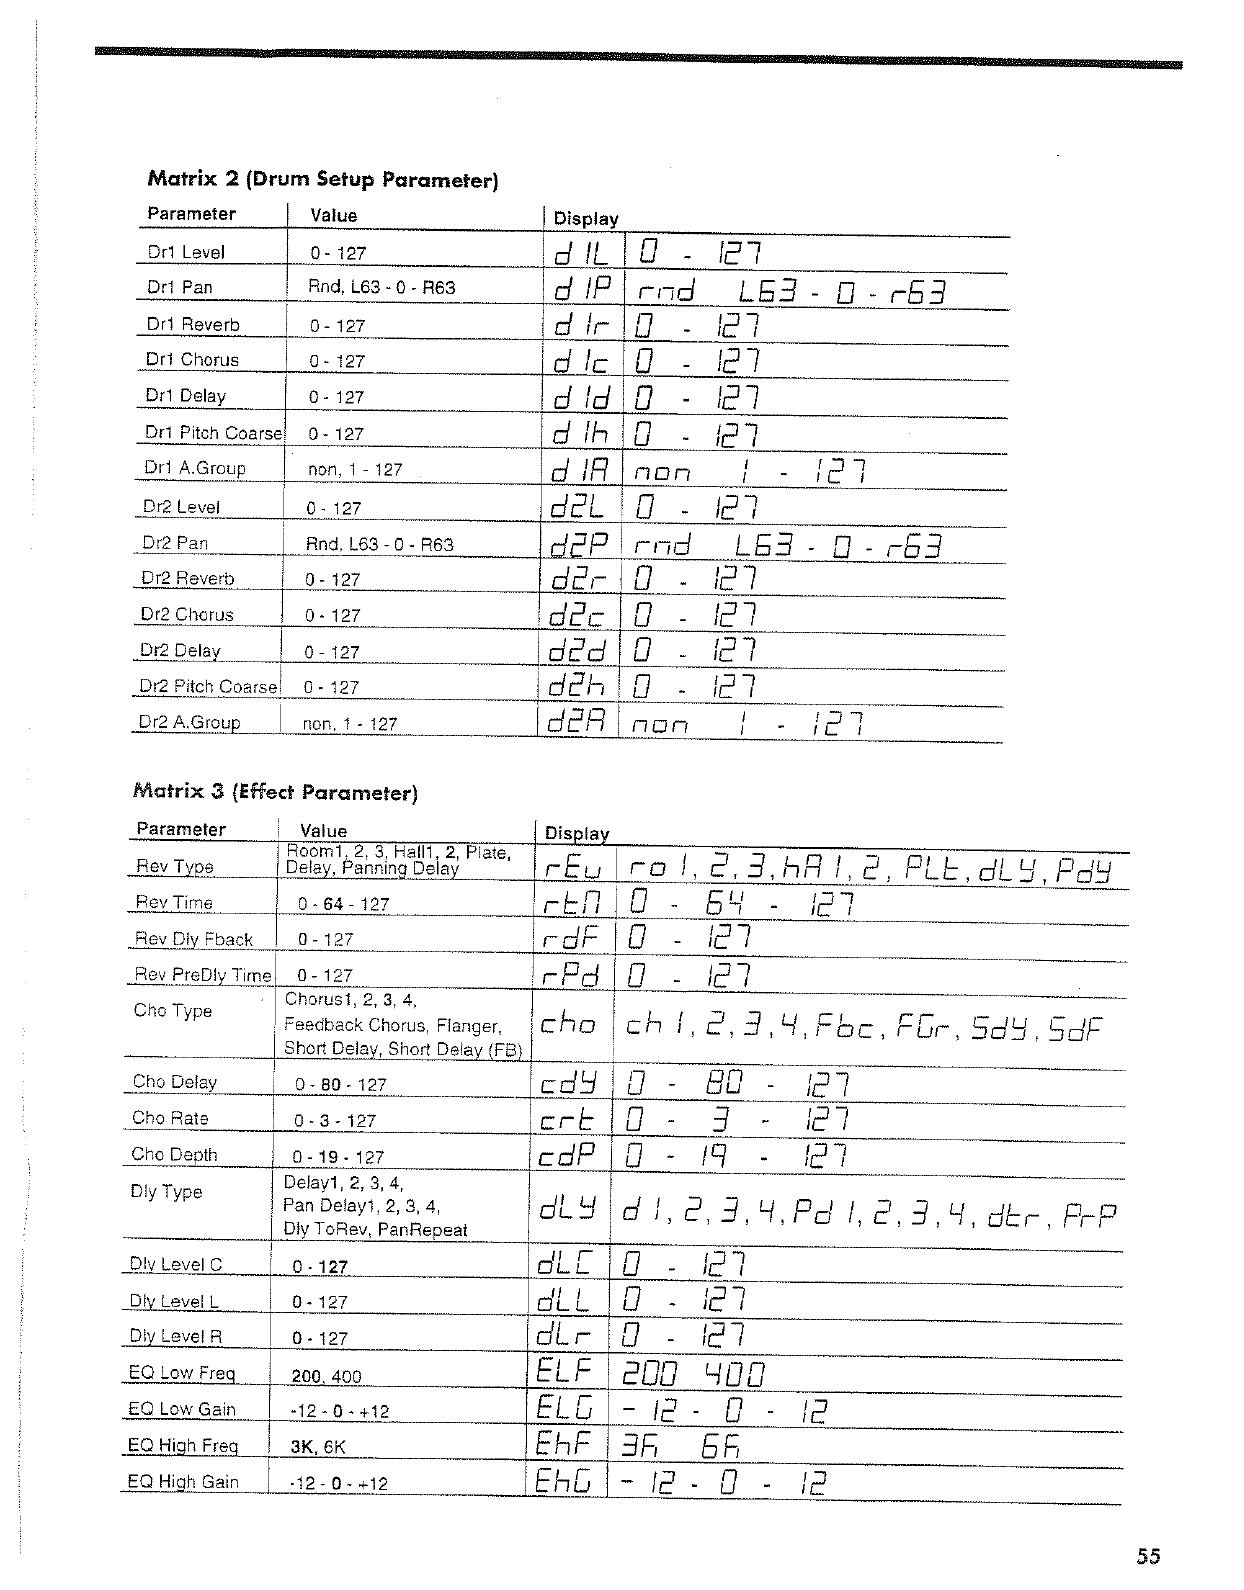 Matrix 2 (Drum Setup Parameter)
Parameter Value Display
Dr1 Level 0 - 127 d1L 0 - 127
Dr1 Pan Rnd, L63 - 0 - R63 d1P rnd L63 - 0 - r63
Dr1 Reverb 0 - 127 d1r 0 - 127
Dr1 Chorus 0 - 127 d1c 0 - 127
Dr1 Delay 0 - 127 d1d 0 - 127
Dr1 Pitch Coarse 0 - 127 d1h 0 - 127
Dr1 A.Group non, 1 - 127 d1A non 1 - 127
Dr2 Level 0 - 127 d2L 0 - 127
Dr2 Pan Rnd, L63 - 0 - R63 d2P rnd L63 - 0 - r63
Dr2 Reverb 0 - 127 d2r 0 - 127
Dr2 Chorus 0 - 127 d2c 0 - 127
Dr2 Delay 0 - 127 d2d 0 - 127
Dr2 Pitch Coarse 0 - 127 d2h 0 - 127
Dr2 A.Group non, 1 - 127 d2A non 1 - 127
Matrix 3 (Effect Parameter)
Parameter Value Display
Rev Type Room1, 2, 3, Hall1, 2, Plate,
Delay, Panning Delay rEu ro1, 2, 3, hA1, 2, PLt, dLy, Pdy
Rev Time 0 - 64 - 127 rtn 0 - 64 - 127
Rev Dly Fback 0 - 127 rdF 0 - 127
Rev PreDly Time 0 - 127 rPd 0 - 127
Cho Type Chorus1, 2, 3, 4,
Feedback Chorus, Flanger, cho ch1, 2, 3, 4, Fbc, FGr, Sdy, SdF
Short Delay, Short Delay (FB)
Cho Delay 0 - 80 - 127 cdy 0 - 80 - 127
Cho Rate 0 - 3 - 127 crt 0 - 3 - 127
Cho Depth 0 - 19 - 127 cdP 0 - 19 - 127
Dly Type Delay1, 2, 3, 4,
Pan Delay1, 2, 3, 4, dLy d1, 2, 3, 4, Pd1, 2, 3, 4, dtr, PrP
Dly ToRev, PanRepeat
Dly Level C 0 - 127 dLC 0 - 127
Dly Level L 0 - 127 dLL 0 - 127
Dly Level R 0 - 127 dLr 0 - 127
EQ Low Freq 200, 400 ELF 200 400
EQ Low Gain -12 - 0 - +12 ELG -12 - 0 - 12
EQ High Freq 3K, 6K EhF 3K 6K
EQ High Gain -12 - 0 - +12 EhG -12 - 0 - 12
55